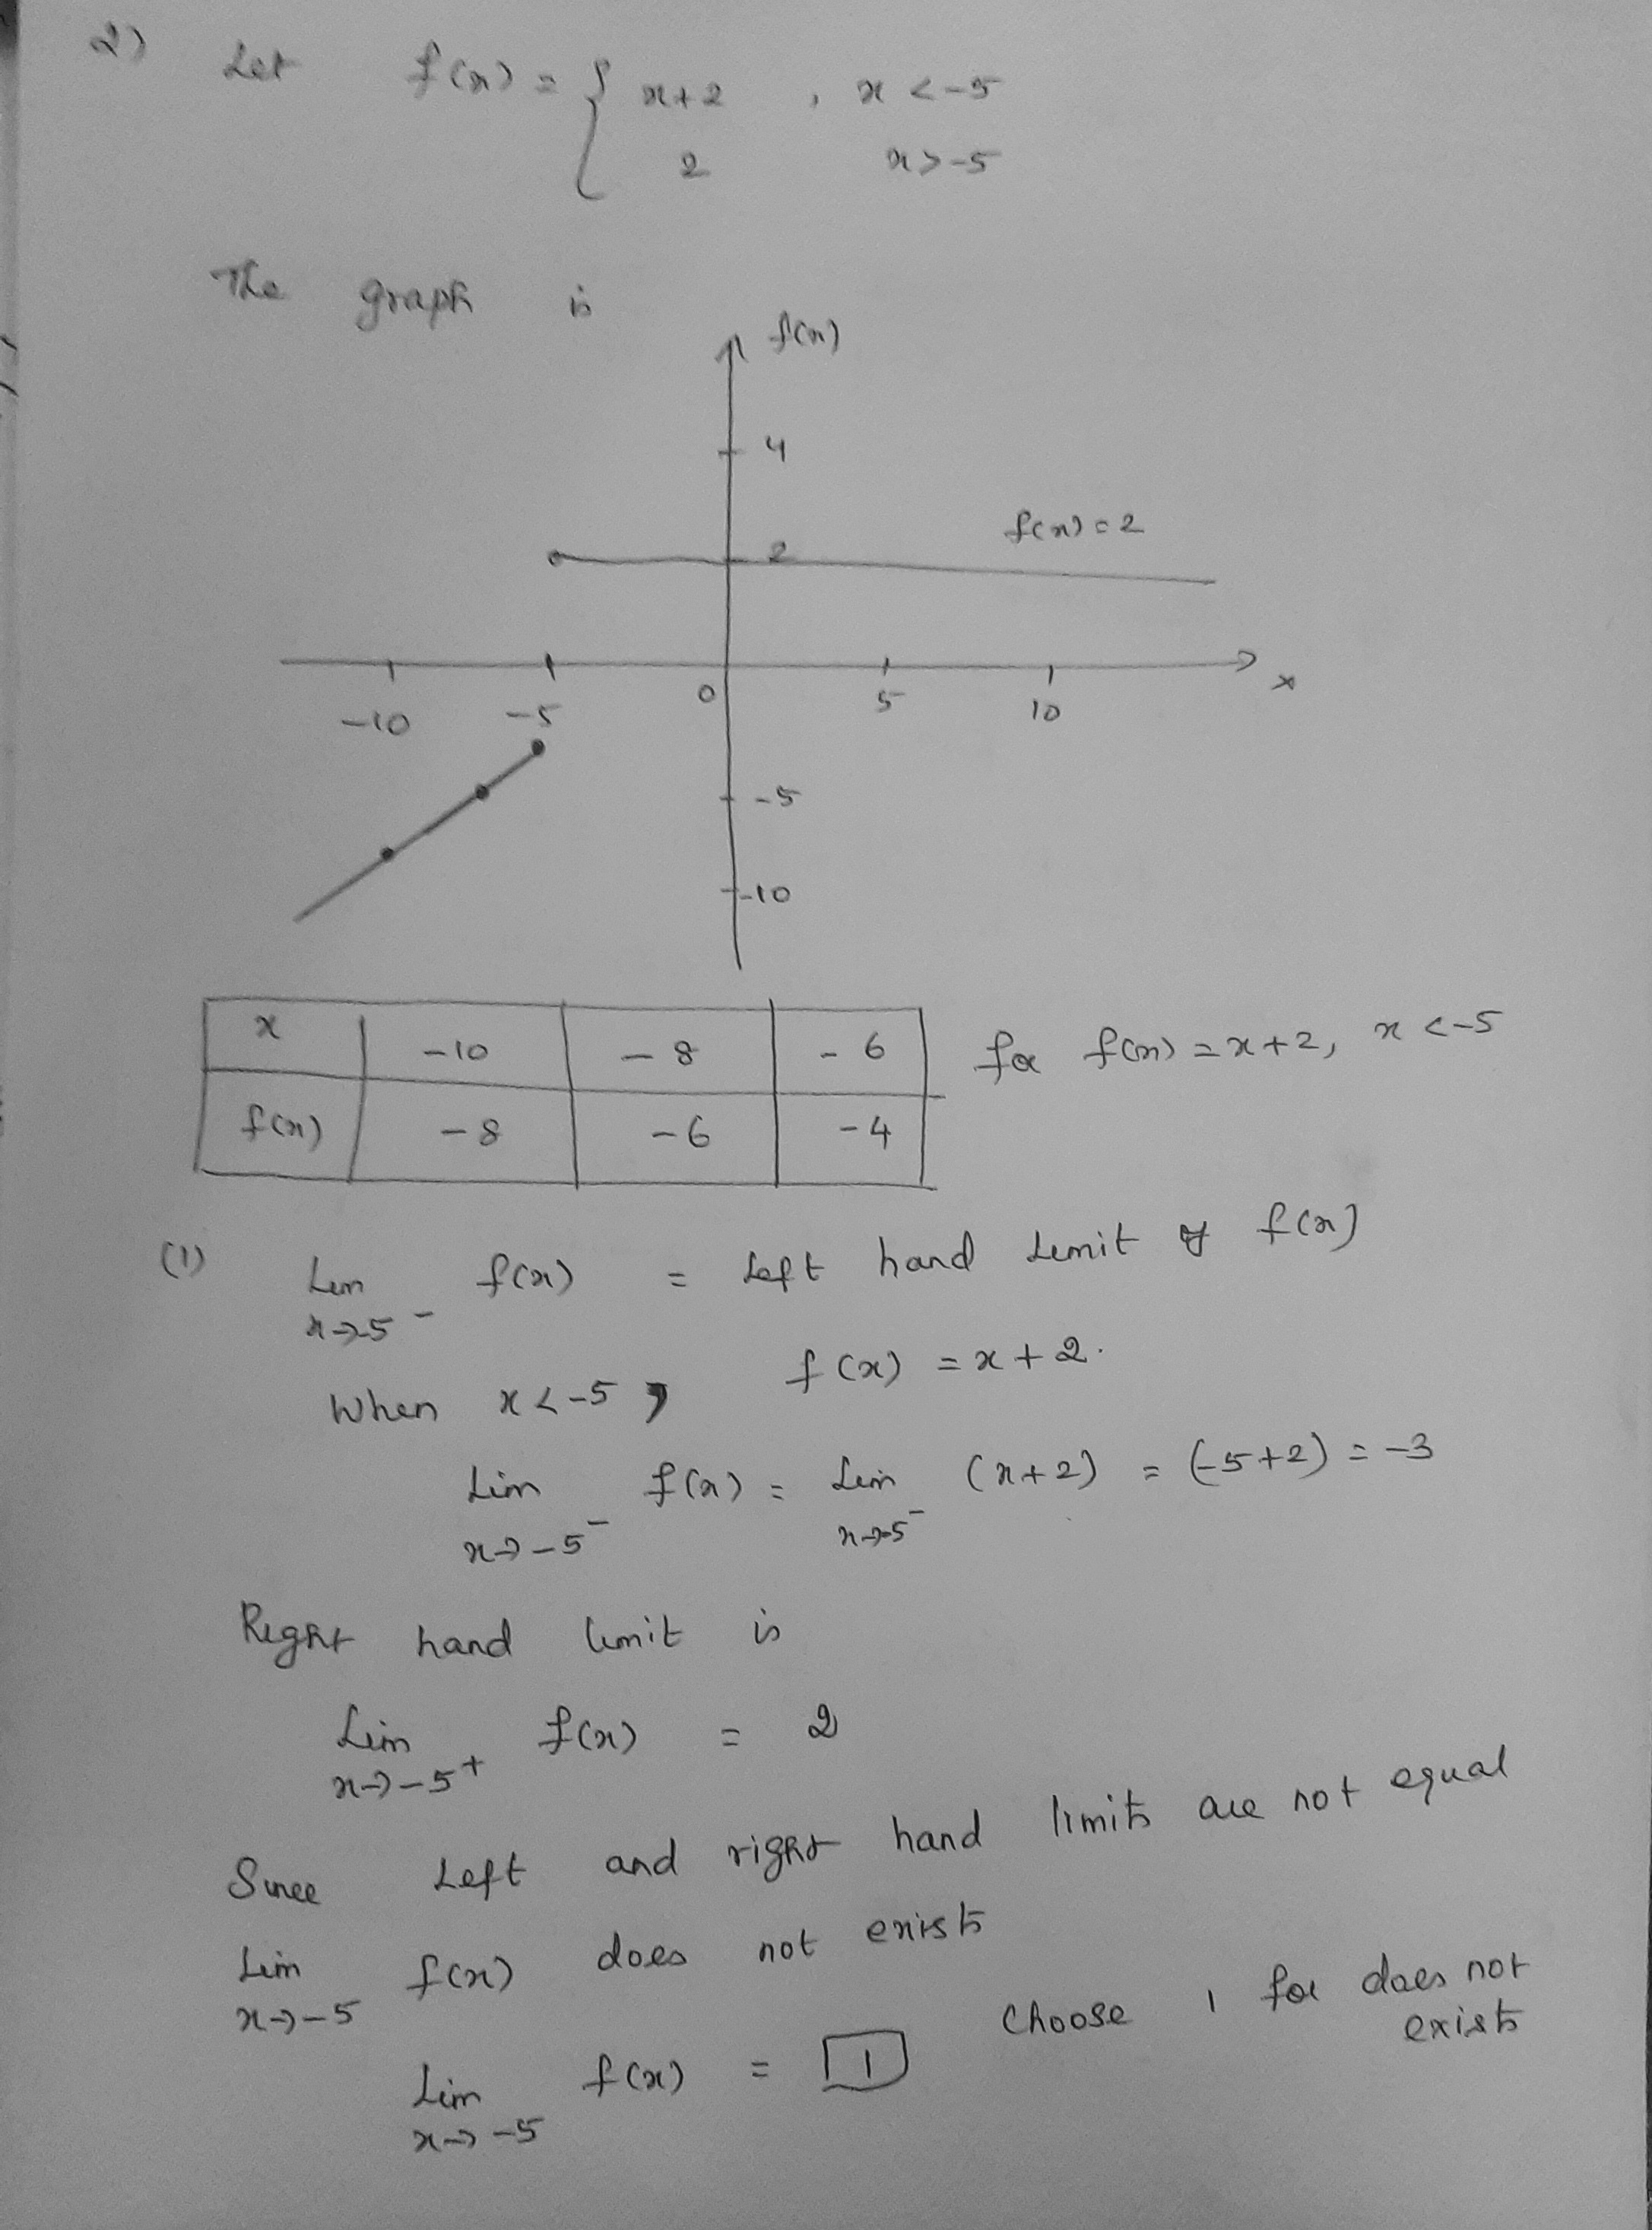 2) Let f(x) = { x+2 , x < -5
2 x > -5
The graph is
f(x)
4
f(x) = 2
2
-10 -5 0 5 10 x
-5
-10
x -10 -8 -6 for f(x) = x+2, x < -5
f(x) -8 -6 -4
(1) Lim f(x) = Left hand Limit of f(x)
x→-5⁻
When x < -5, f(x) = x + 2.
Lim f(x) = Lim (x+2) = (-5+2) = -3
x→-5⁻ x→-5⁻
Right hand limit is
Lim f(x) = 2
x→-5⁺
Since Left and right hand limits are not equal
Lim f(x) does not exists
x→-5
Choose 1 for does not
exists
Lim f(x) = 1
x→-5